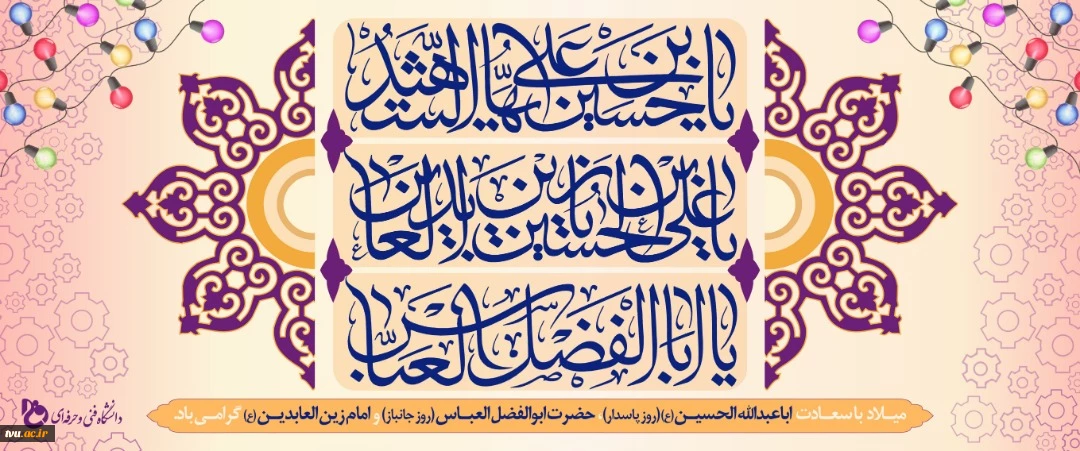 یا حسین بن علی ایها الشهید
یا علی بن الحسین یا زین العابدین
یا اباالفضل العباس
میلاد با سعادت اباعبدالله الحسین (ع) (روز پاسدار) ، حضرت ابوالفضل العباس (روز جانباز) و امام زین العابدین (ع) گرامی باد.
دانشگاه فنی و حرفه‌ای
tvu.ac.ir